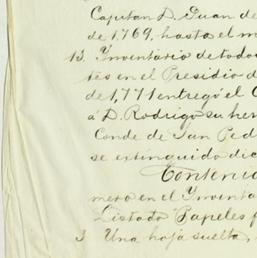 Capitan D. Juan de
de 1769, hasta el m
13. Inventario de todo
tes en el Presidio d
de 1,771 entregó el C
á D. Rodrigo su her
Conde de San Ped
se extinguido dic
Contenid
mero en el Invent
Listado Papeles f
3 Una hoja suelta,